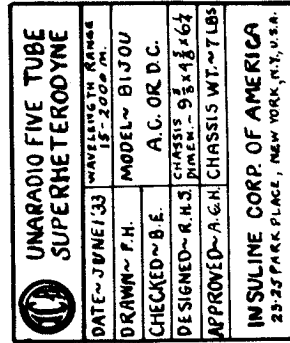 ICA
UNARADIO FIVE TUBE
SUPERHETERODYNE
DATE~JUNE 1,'33
WAVELENGTH RANGE
15-2000 M.
DRAWN~ P.H.
MODEL~ BIJOU
CHECKED~B.E.
A.C. OR D.C.
DESIGNED~R.H.S.
CHASSIS
DIMEN.~9⅝x4⅝x6¼
APPROVED~A.G.H.
CHASSIS WT.~7 LBS
INSULINE CORP. OF AMERICA
23-25 PARK PLACE, NEW YORK, N.Y., U.S.A.